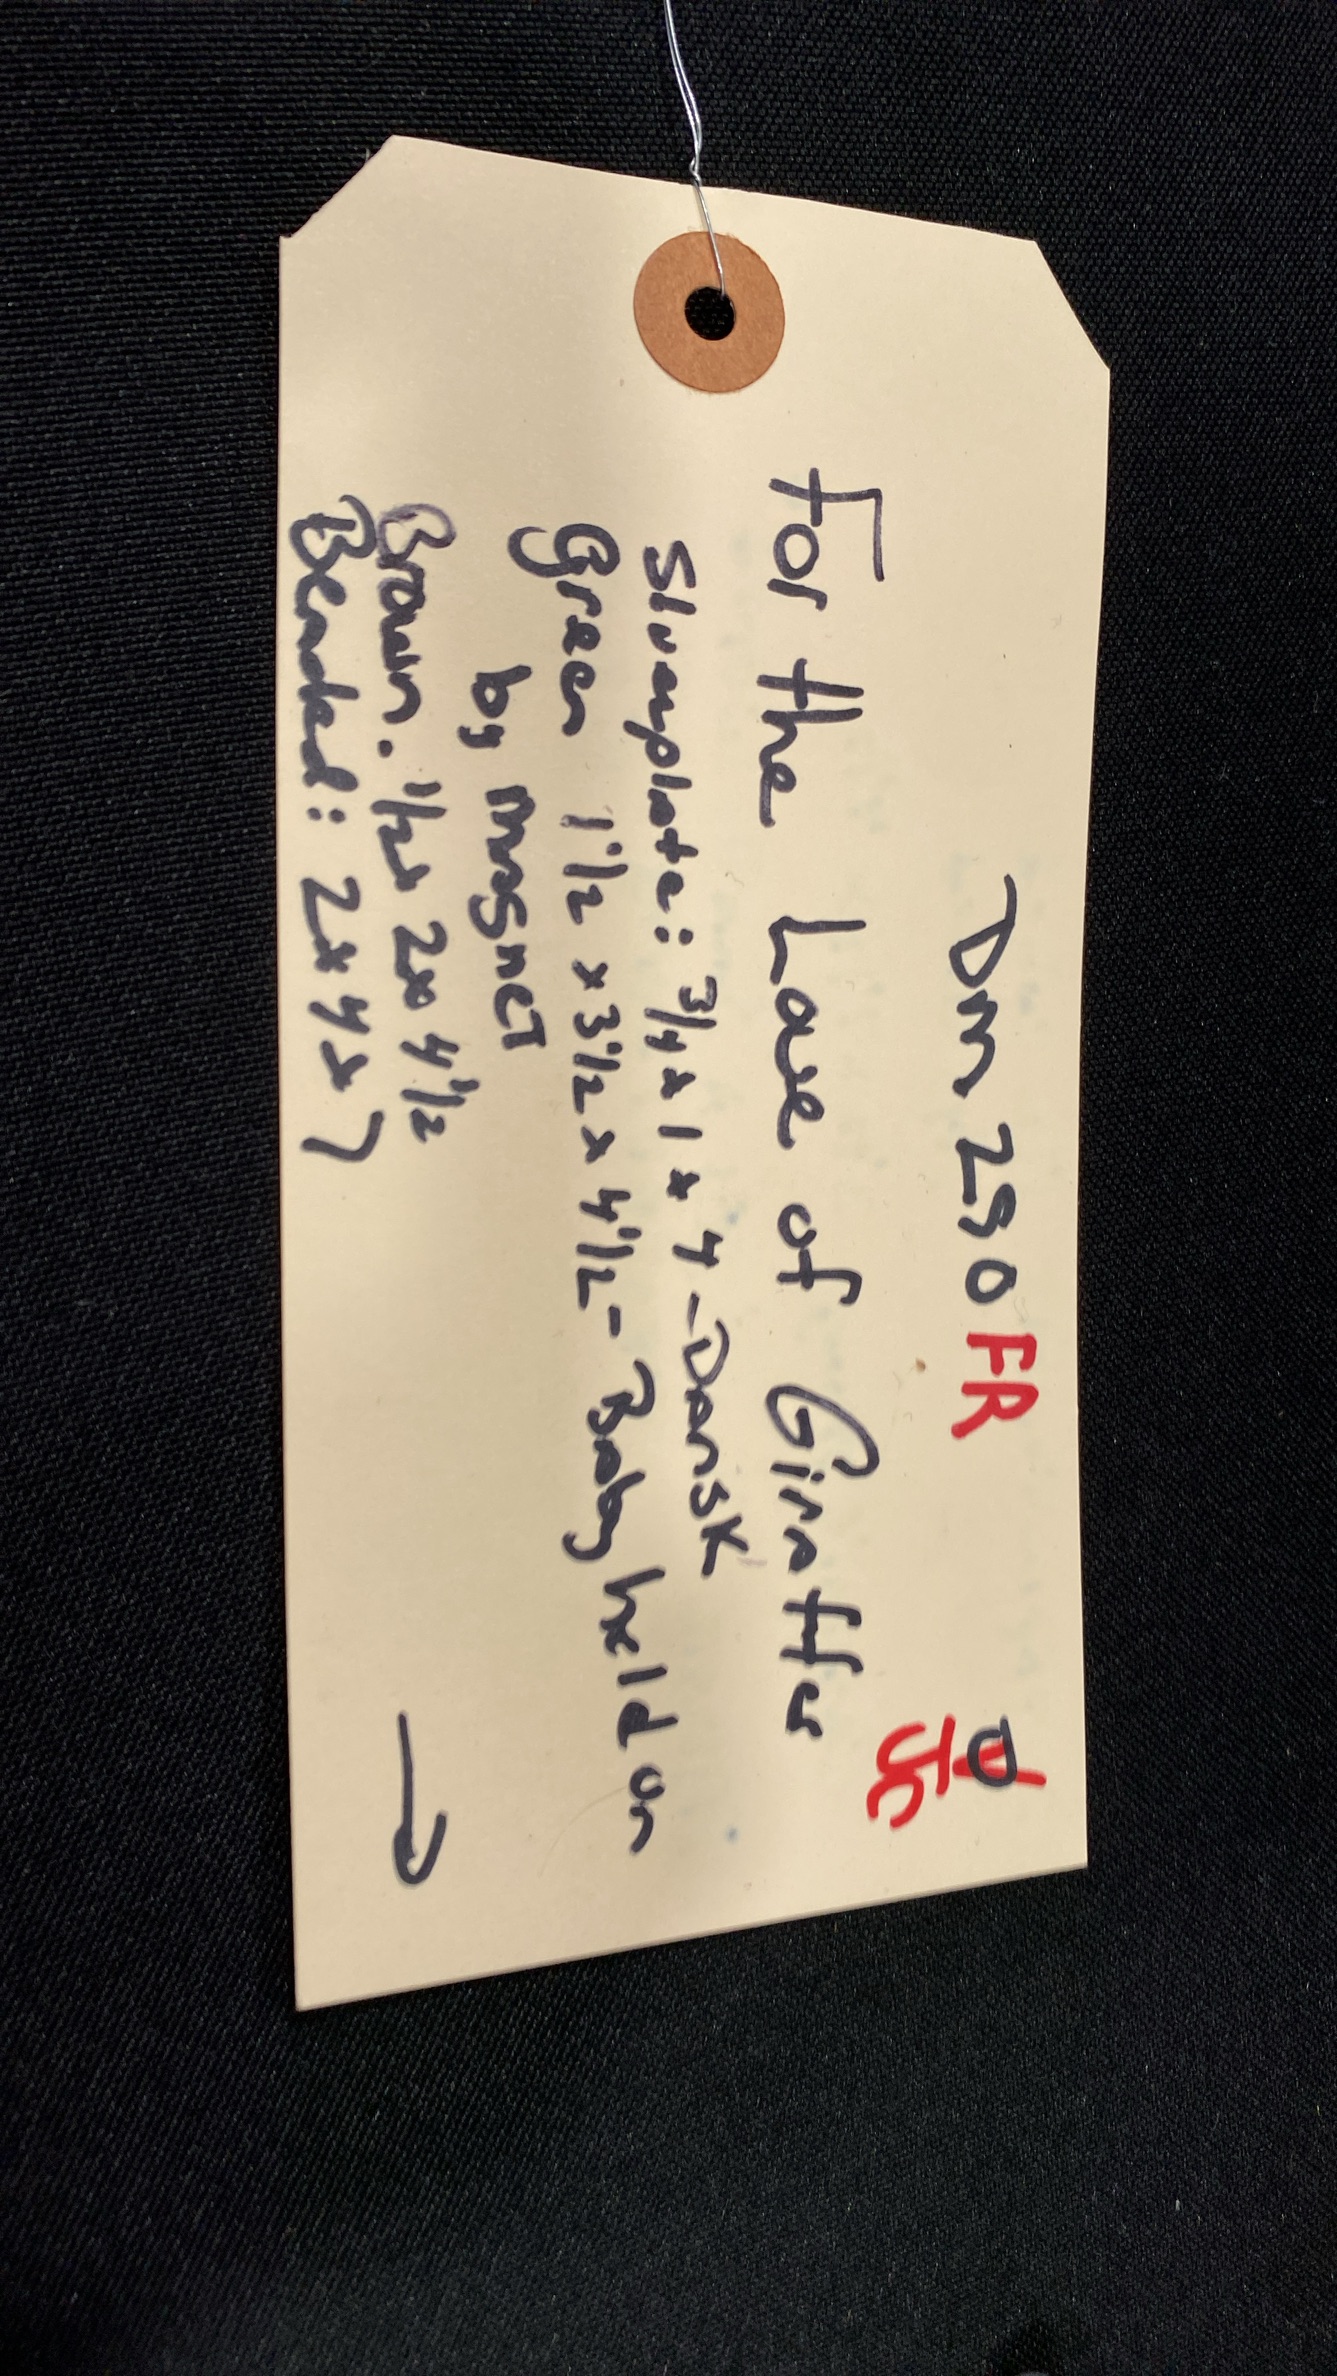 Dm 290 FR
JC
For the Love of Giraffes
Silverplate: 3/4 x 1 x 4 - Dansk
Green 1 1/2 x 3 1/2 x 4 1/2 - Baby held on
by magnet
Brown. 1/2 x 2 x 4 1/2
Beaded: 2 x 4 x 7